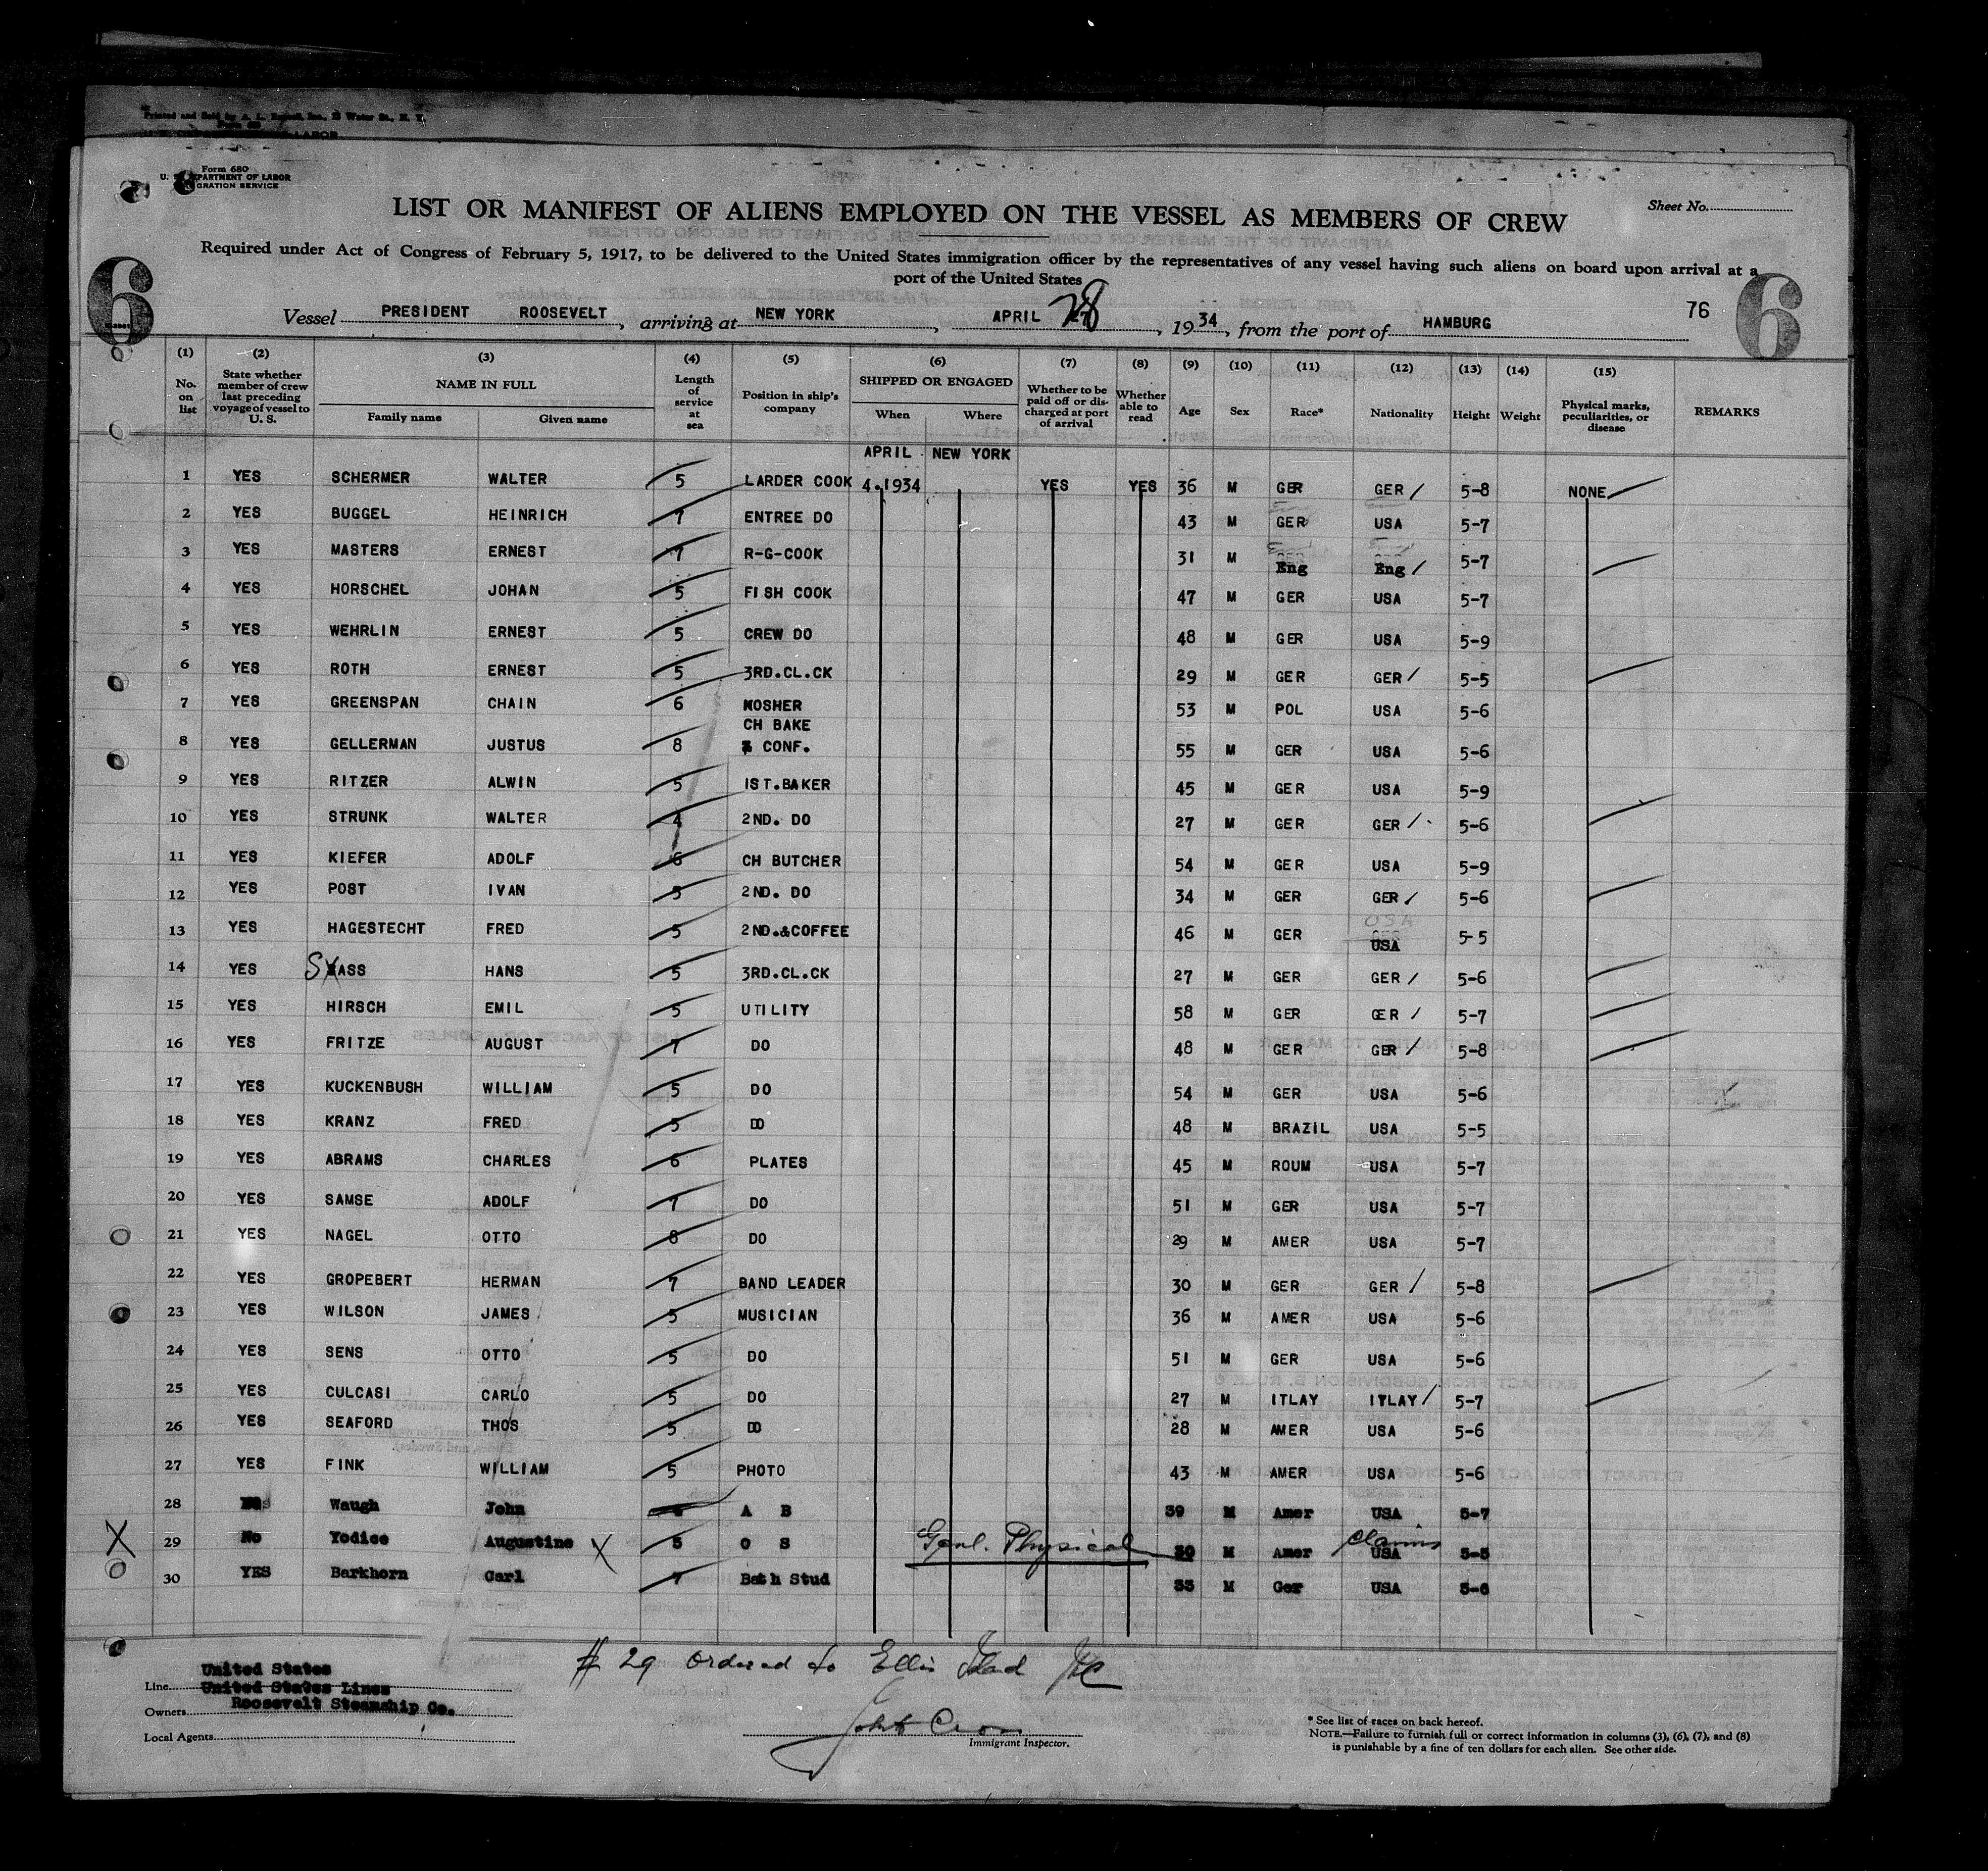 Printed and Sold by A. L. Russell, Inc., Water St., N. Y.
Form 680
U. S. DEPARTMENT OF LABOR
GRATION SERVICE
Sheet No.
LIST OR MANIFEST OF ALIENS EMPLOYED ON THE VESSEL AS MEMBERS OF CREW
Required under Act of Congress of February 5, 1917, to be delivered to the United States immigration officer by the representatives of any vessel having such aliens on board upon arrival at a
port of the United States
6 6
76
Vessel PRESIDENT ROOSEVELT, arriving at NEW YORK, APRIL 28, 1934, from the port of HAMBURG
(1) No. on list
(2) State whether member of crew last preceding voyage of vessel to U. S.
(3) NAME IN FULL Family name Given name
(4) Length of service at sea
(5) Position in ship's company
(6) SHIPPED OR ENGAGED When Where
(7) Whether to be paid off or discharged at port of arrival
(8) Whether able to read
(9) Age
(10) Sex
(11) Race*
(12) Nationality
(13) Height
(14) Weight
(15) Physical marks, peculiarities, or disease
REMARKS
APRIL NEW YORK
1 YES SCHERMER WALTER 5 LARDER COOK 4.1934 YES YES 36 M GER GER / 5-8 NONE
2 YES BUGGEL HEINRICH 7 ENTREE DO 43 M GER USA 5-7
3 YES MASTERS ERNEST 7 R-G-COOK 31 M Eng Eng / 5-7
4 YES HORSCHEL JOHAN 5 FISH COOK 47 M GER USA 5-7
5 YES WEHRLIN ERNEST 5 CREW DO 48 M GER USA 5-9
6 YES ROTH ERNEST 5 3RD.CL.CK 29 M GER GER / 5-5
7 YES GREENSPAN CHAIN 6 KOSHER 53 M POL USA 5-6
CH BAKE
8 YES GELLERMAN JUSTUS 8 & CONF. 55 M GER USA 5-6
9 YES RITZER ALWIN 5 IST.BAKER 45 M GER USA 5-9
10 YES STRUNK WALTER 4 2ND. DO 27 M GER GER / 5-6
11 YES KIEFER ADOLF 6 CH BUTCHER 54 M GER USA 5-9
12 YES POST IVAN 5 2ND. DO 34 M GER GER / 5-6
13 YES HAGESTECHT FRED 5 2ND.&COFFEE 46 M GER USA USA 5-5
14 YES SASS HANS 5 3RD.CL.CK 27 M GER GER / 5-6
15 YES HIRSCH EMIL 5 UTILITY 58 M GER GER / 5-7
16 YES FRITZE AUGUST 7 DO 48 M GER GER / 5-8
17 YES KUCKENBUSH WILLIAM 5 DO 54 M GER USA 5-6
18 YES KRANZ FRED 5 DO 48 M BRAZIL USA 5-5
19 YES ABRAMS CHARLES 6 PLATES 45 M ROUM USA 5-7
20 YES SAMSE ADOLF 7 DO 51 M GER USA 5-7
21 YES NAGEL OTTO 8 DO 29 M AMER USA 5-7
22 YES GROPEBERT HERMAN 7 BAND LEADER 30 M GER GER / 5-8
23 YES WILSON JAMES 5 MUSICIAN 36 M AMER USA 5-6
24 YES SENS OTTO 5 DO 51 M GER USA 5-6
25 YES CULCASI CARLO 5 DO 27 M ITLAY ITLAY / 5-7
26 YES SEAFORD THOS 5 DO 28 M AMER USA 5-6
27 YES FINK WILLIAM 5 PHOTO 43 M AMER USA 5-6
28 Waugh John A B 39 M Amer USA 5-7
X 29 No Yodice Augustine X 5 O S Genl. Physical 30 M Amer Claims USA 5-5
30 YES Barkhorn Carl 7 Bath Stud 33 M Ger USA 5-6
# 29 Ordered to Ellis Island
United States
Line United States Lines
Owners Roosevelt Steamship Co.
Local Agents
John Cron
Immigrant Inspector.
* See list of races on back hereof.
NOTE.—Failure to furnish full or correct information in columns (3), (6), (7), and (8)
is punishable by a fine of ten dollars for each alien. See other side.